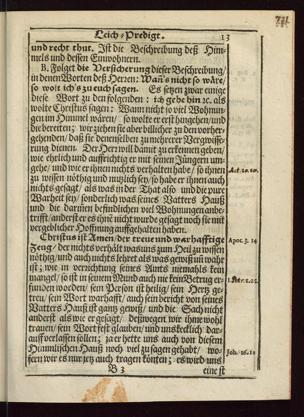 Leich-Predigt. 13
und recht thut. Ist die Beschreibung deß Him-
mels und dessen Einwohnern.
B. Folget die Versicherung dieser Beschreibung/
in denen Worten deß Herzen: Wañ's nicht so wäre/
so wolt ich's zu euch sagen. Es setzen zwar einige
diese Wort zu den folgenden: ich gehe hin ꝛc. als
wolte Christus sagen: Wann nicht so viel Wohnun-
gen im Himmel wären/ so wolte er erst hingehen/ und
die bereiten; wir ziehen sie aber billicher zu den vorher-
gehenden/ daß sie denenselben zu mehrerer Vergwisse-
rung dienen. Der Herr will damit zu erkennen geben/
wie ehrlich und auffrichtig er mit seinen Jüngern um-
gehe/ und wie er ihnen nichts verhalten habe/ so ihnen
zu wissen nöthig und nuzlich sey/ so habe er ihnen auch
nichts gesagt/ als was in der That also und die pure
Warheit sey/ sonderlich was seines Vatters Hauß
und die darinnen befindlichen viel Wohnungen anbe-
trifft/ anderst er es ihnē nicht wurde gesagt noch sie mit
vergeblicher Hoffnung auffgehalten haben.
Christus ist Amen/ der treue und warhafftige
Zeug/ der nichts verhält was uns zum Heil zu wissen
nöthig/ und auch nichts lehret als was gewiß uñ wahr
ist; wie in verrichtung seines Amts niemahls kein
mangel/ so ist in seinem Mund auch nie kein Betrug er-
funden worden/ sein Person ist heilig/ sein Hertz ge-
treu/ sein Wort warhafft/ auch sein bericht von seines
Vatters Hauß ist gantz gewiß/ und die Sach nicht
anderst als wie er gesagt/ deßwegen wir ihme wohl
trauen/ sein Wort fest glauben/ und uns kecklich dar-
auf verlassen sollen; ja er hette uns auch von diesem
Himmlischen Hauß noch viel zu sagen gehabt/ wo-
fern wir es nur jetz auch tragen könten; es wird uns
B 3 eine st
Act. 20. 20.
Apoc. 3. 14
1. Petr. 2. 22.
Joh. 16. 12